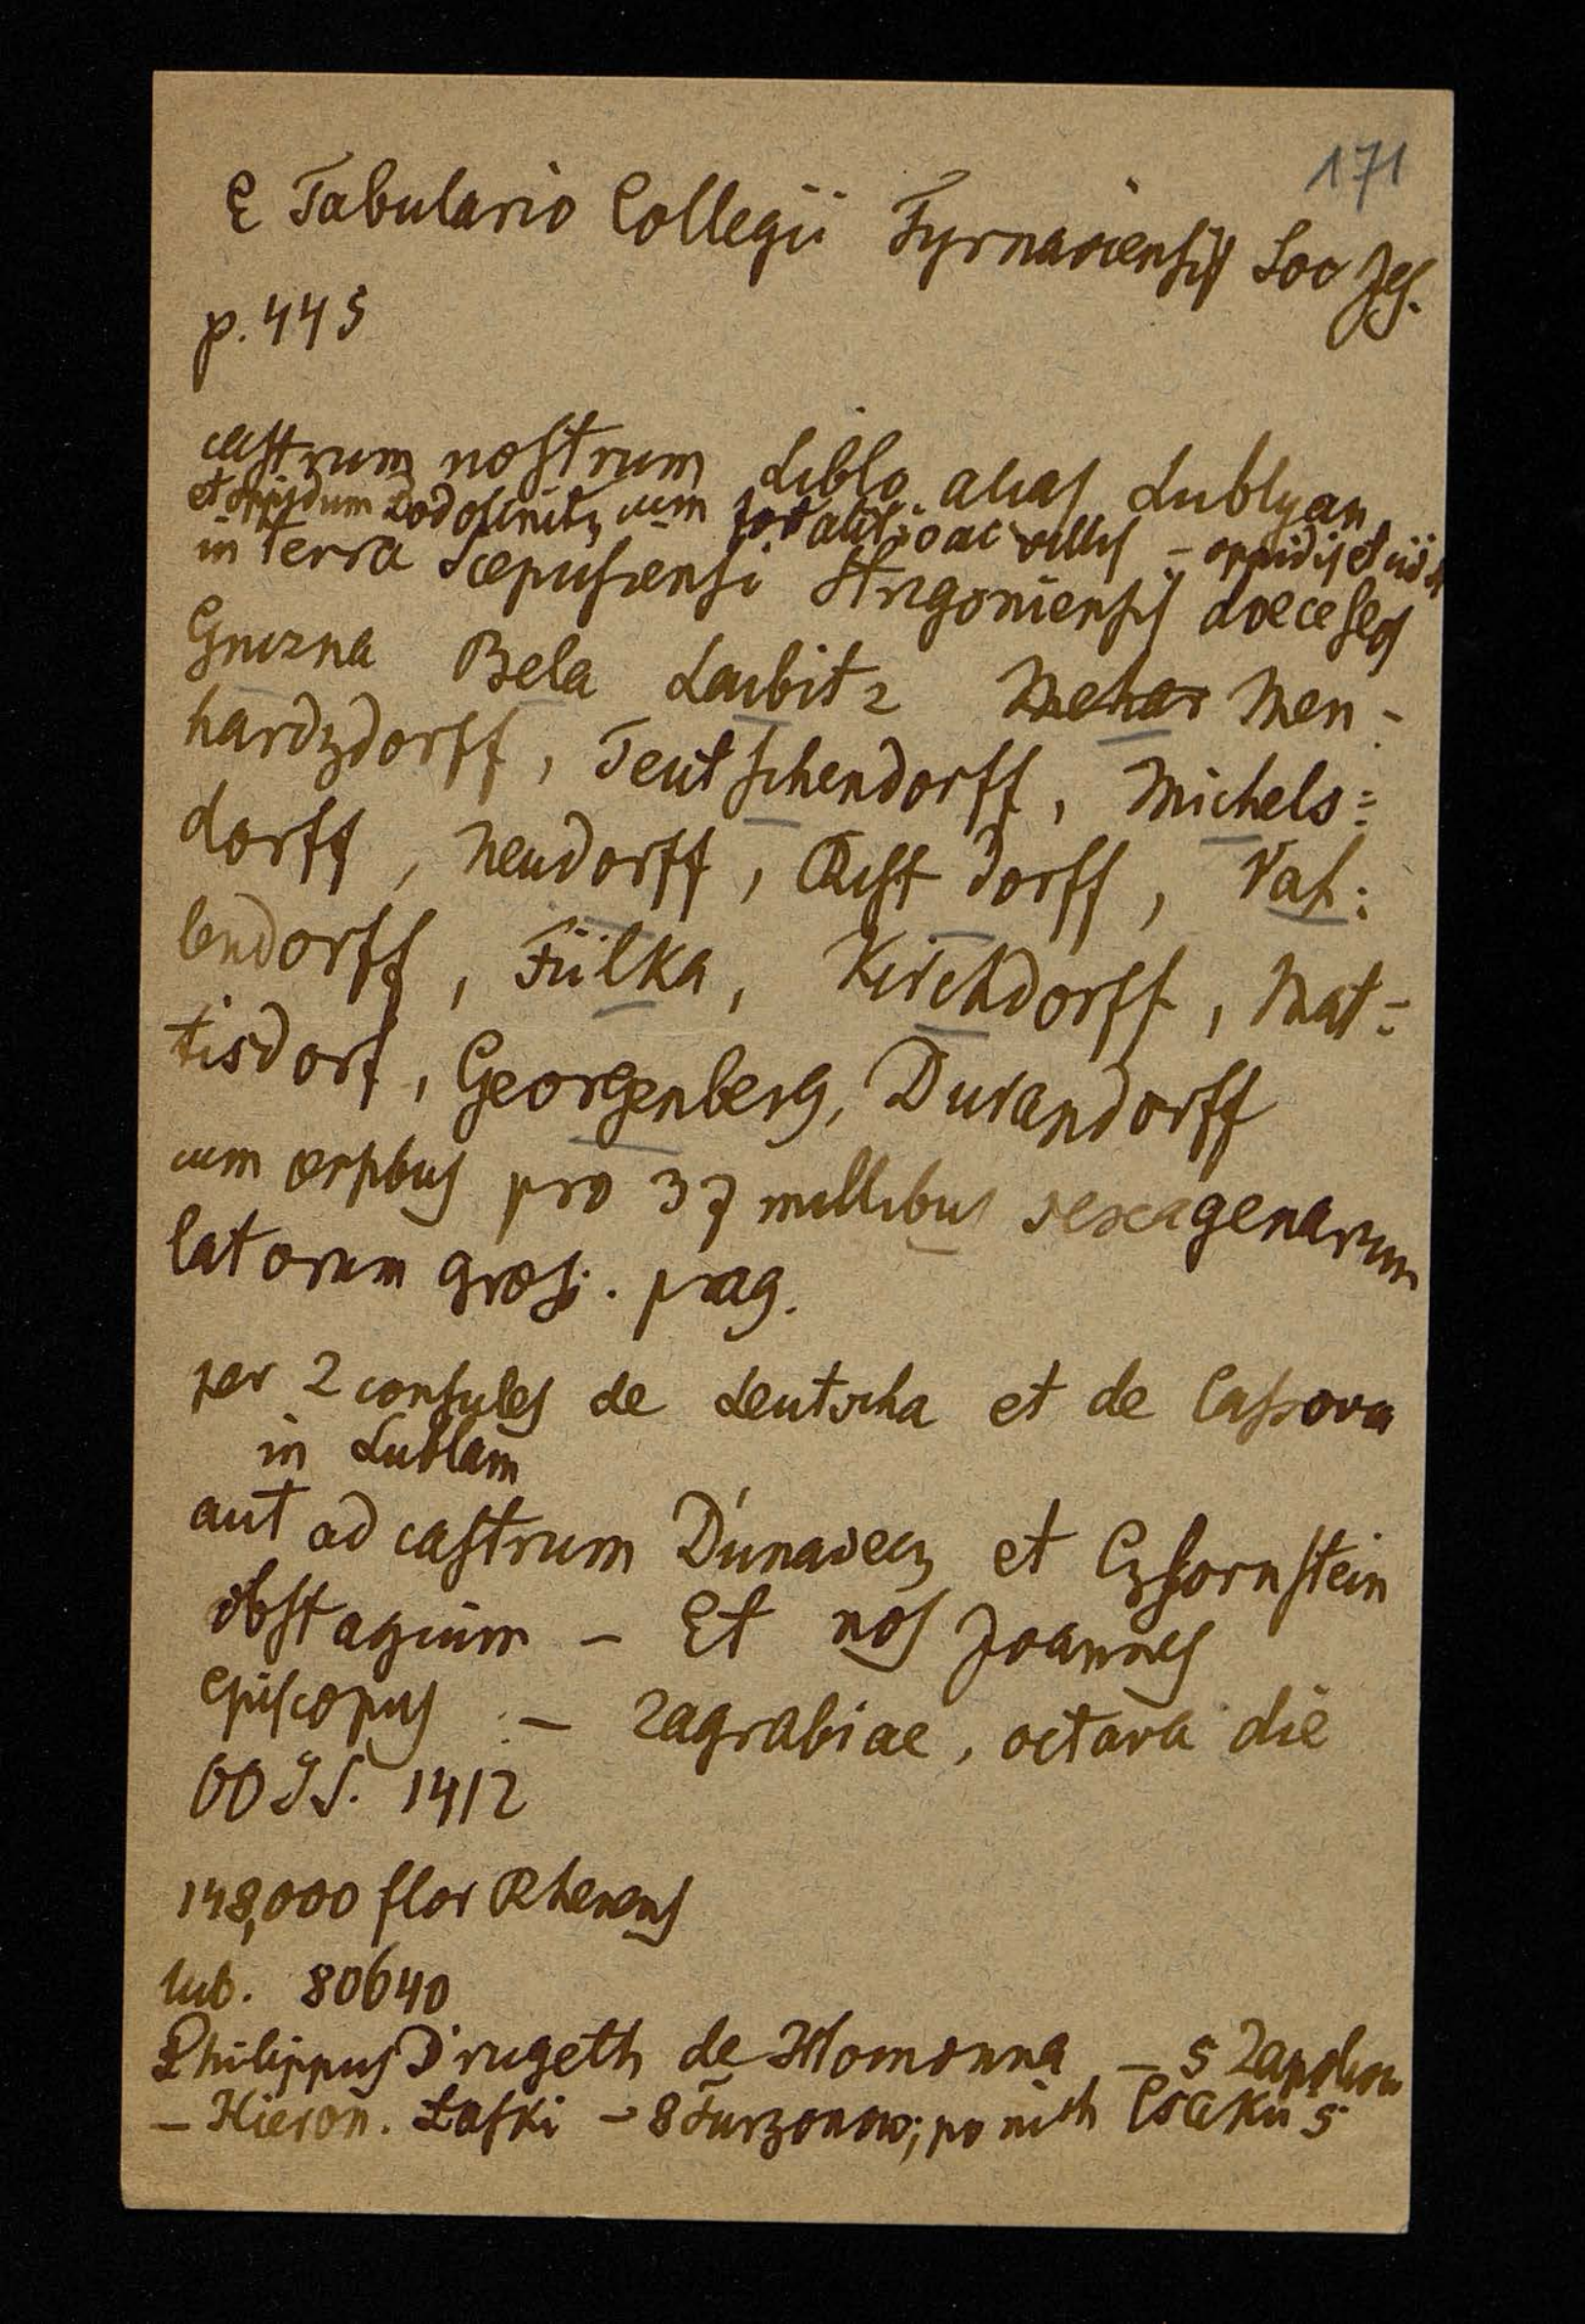 171
E Tabulario Collegii Tyrnaviensis Soc Jes.
p. 445
castrum nostrum Liblo alias Lublyan
et opidum Podolinitz cum fortalitio ac villis – oppidis et
in Terra Scepusiensi Strigoniensis doecesos
Gnizna Bela Laubitz Mehar Men-
hardzdorff, Teutschendorff, Michels=
dorff, Neudorff, Risstdorff, Val:
lendorff, Fülka, Kirchdorff, Mat=
tisdorf, Georgenberg, Durandorff
cum pro 37 millibus sexagenarum
latorum gros. prag.
per 2 consules de Leutscha et de Cassova
in Lublam
aut ad castrum Dunavecz et Czsornstein
obstagium – Et nos Joannes
episcopus – Zagrabiae, octava die
OO SS. 1412
148,000 flor Rhenens
lub. 80640
Philippus Drugeth de Homonna – 5 Zapolion
– Hieron. Łaski – 8 Turzonow; po nich Csaku 5